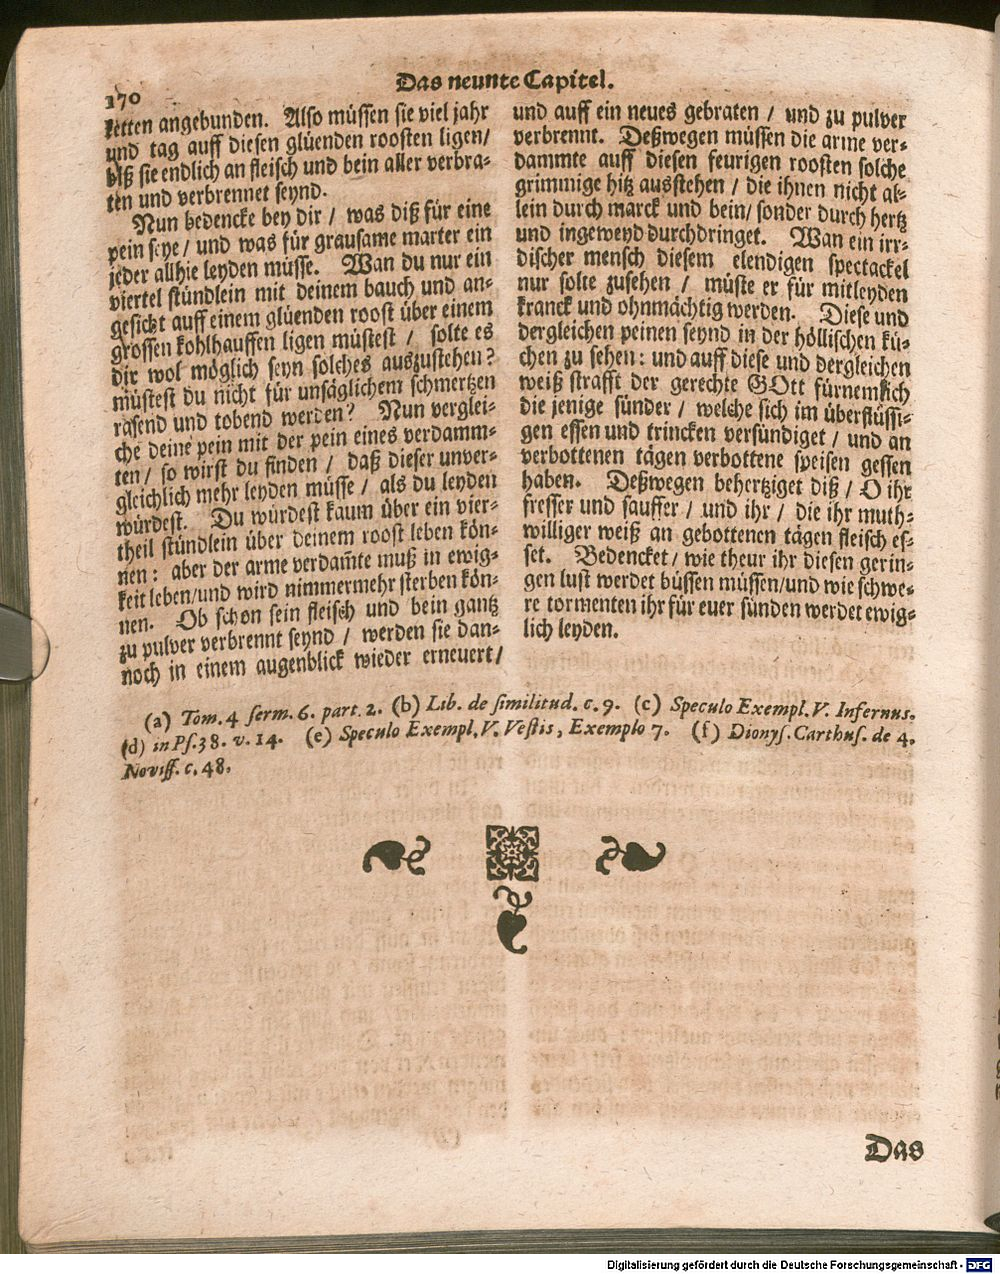 170
Das neunte Capitel.
ketten angebunden. Also müssen sie viel jahr
und tag auff diesen glüenden roosten ligen/
biß sie endlich an fleisch und bein aller verbra-
ten und verbrennet seynd.
Nun bedencke bey dir / was diß für eine
pein seye / und was für grausame marter ein
jeder allhie leyden müsse. Wan du nur ein
viertel stündlein mit deinem bauch und an-
gesicht auff einem glüenden roost über einem
grossen kohlhauffen ligen müstest / solte es
dir wol möglich seyn solches auszustehen?
müstest du nicht für unsäglichem schmertzen
rasend und tobend werden? Nun verglei-
che deine pein mit der pein eines verdamm-
ten / so wirst du finden / daß dieser unver-
gleichlich mehr leyden müsse / als du leyden
würdest. Du würdest kaum über ein vier-
theil stündlein über deinem roost leben kön-
nen: aber der arme verdam̃te muß in ewig-
keit leben/und wird nimmermehr sterben kön-
nen. Ob schon sein fleisch und bein gantz
zu pulver verbrennt seynd / werden sie dan-
noch in einem augenblick wieder erneuert/
und auff ein neues gebraten / und zu pulver
verbrennt. Deßwegen müssen die arme ver-
dammte auff diesen feurigen roosten solche
grimmige hitz ausstehen / die ihnen nicht al-
lein durch marck und bein/ sonder durch hertz
und ingeweyd durchdringet. Wan ein irr-
discher mensch diesem elendigen spectackel
nur solte zusehen / müste er für mitleyden
kranck und ohnmächtig werden. Diese und
dergleichen peinen seynd in der höllischen kü-
chen zu sehen: und auff diese und dergleichen
weiß strafft der gerechte GOtt fürnemlich
die jenige sünder / welche sich im überflüssi-
gen essen und trincken versündiget / und an
verbottenen tägen verbottene speisen gessen
haben. Deßwegen behertziget diß / O ihr
fresser und sauffer / und ihr / die ihr muth-
williger weiß an gebottenen tägen fleisch es-
set. Bedencket / wie theur ihr diesen gerin-
gen lust werdet büssen müssen/und wie schwe-
re tormenten ihr für euer sünden werdet ewig-
lich leyden.
(a) Tom. 4 serm. 6. part. 2. (b) Lib. de similitud. c. 9. (c) Speculo Exempl. V. Infernus.
(d) in Ps. 38. v. 14. (e) Speculo Exempl. V. Vestis, Exemplo 7. (f) Dionys. Carthus. de 4.
Noviss. c. 48.
Das
Digitalisierung gefördert durch die Deutsche Forschungsgemeinschaft - DFG